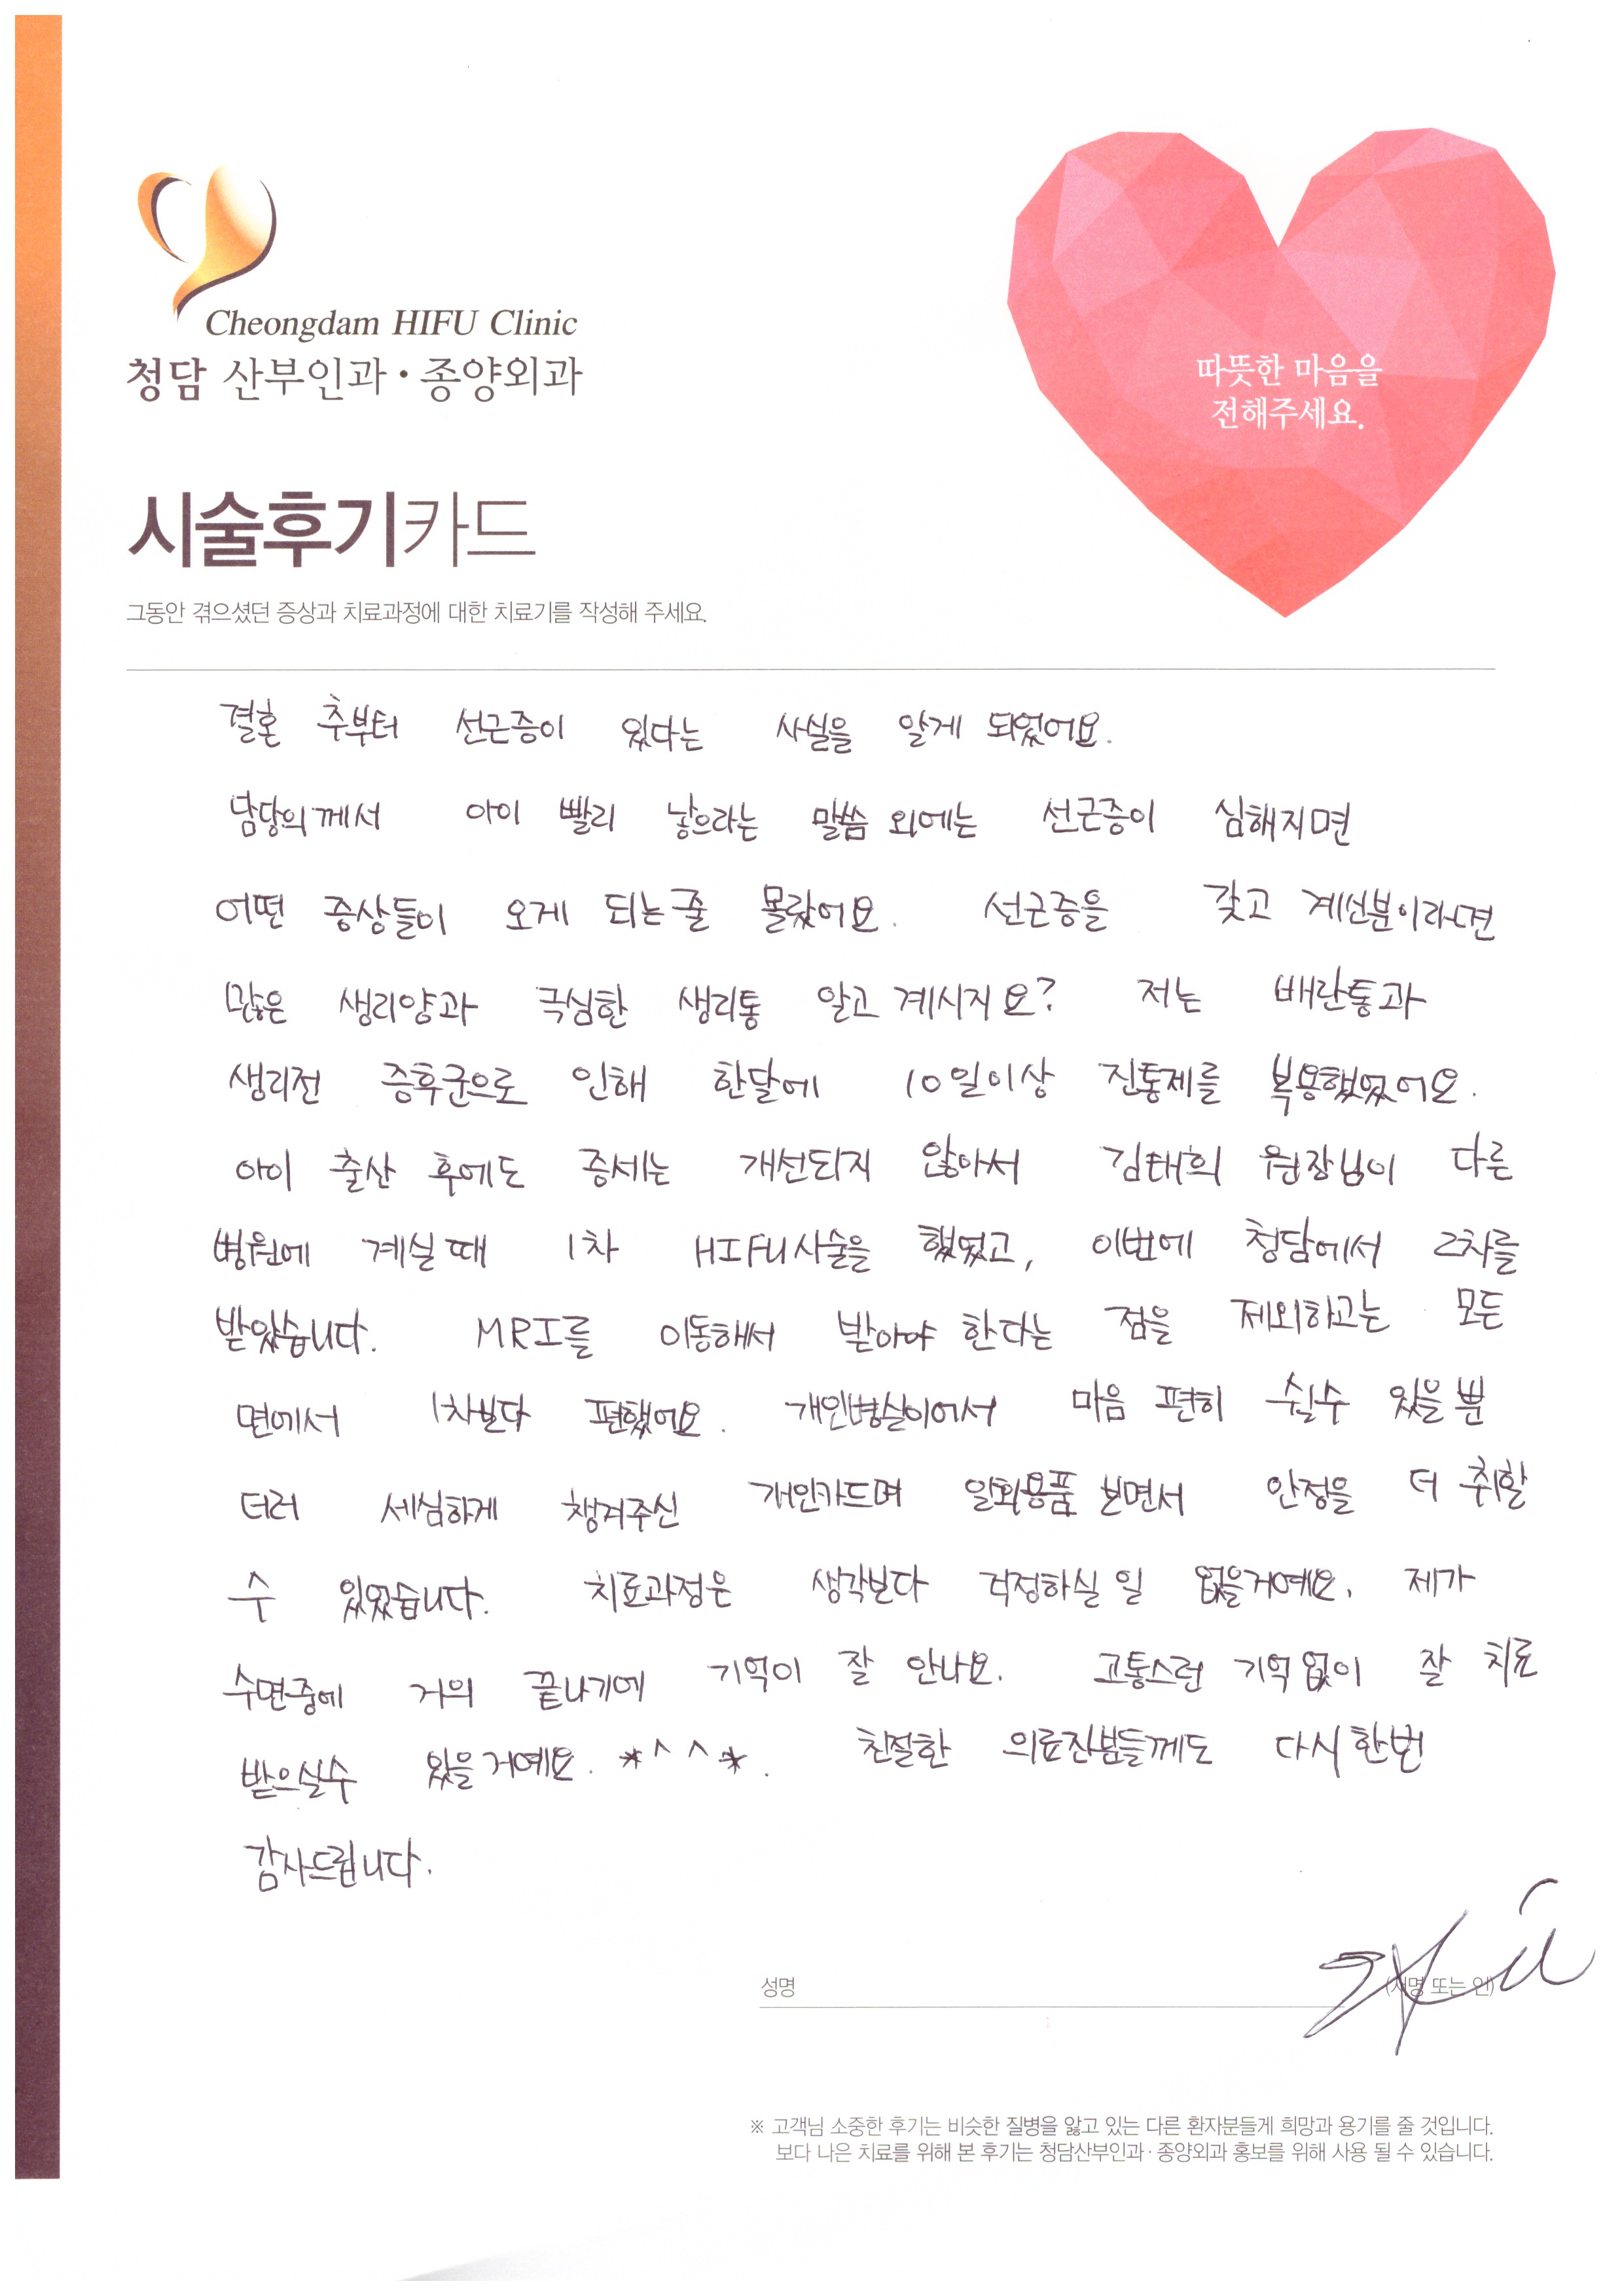 Cheongdam HIFU Clinic
청담 산부인과·종양외과
따뜻한 마음을
전해주세요.
시술후기카드
그동안 겪으셨던 증상과 치료과정에 대한 치료기를 작성해 주세요.
결혼 후부터 선근증이 있다는 사실을 알게 되었어요.
담당의께서 아이 빨리 낳으라는 말씀 외에는 선근증이 심해지면
어떤 증상들이 오게 되는줄 몰랐어요. 선근증을 갖고 계신분이라면
많은 생리양과 극심한 생리통 알고 계시지요? 저는 배란통과
생리전 증후군으로 인해 한달에 10일이상 진통제를 복용했었어요.
아이 출산 후에도 증세는 개선되지 않아서 김태희 원장님이 다른
병원에 계실때 1차 HIFU시술을 했었고, 이번에 청담에서 2차를
받았습니다. MRI를 이동해서 받아야 한다는 점을 제외하고는 모든
면에서 1차보다 편했어요. 개인병실이어서 마음 편히 쉴수 있을뿐
더러 세심하게 챙겨주신 개인카드며 일회용품 보면서 안정을 더 취할
수 있었습니다. 치료과정은 생각보다 걱정하실 일 없을거예요. 제가
수면중에 거의 끝나기에 기억이 잘 안나요. 고통스런 기억없이 잘 치료
받으실수 있을거예요. *^^*. 친절한 의료진분들께도 다시한번
감사드립니다.
성명 (서명 또는 인)
※ 고객님 소중한 후기는 비슷한 질병을 앓고 있는 다른 환자분들게 희망과 용기를 줄 것입니다.
보다 나은 치료를 위해 본 후기는 청담산부인과·종양외과 홍보를 위해 사용 될 수 있습니다.